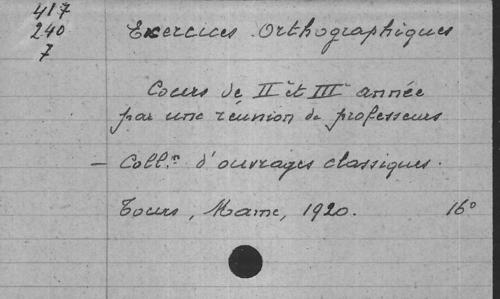 417
240
7
Exercices Orthographiques
Cours de IIe et IIIe année
par une réunion de professeurs
- Coll.n d'ouvrages classiques.
Tours, Mame, 1920. 16°